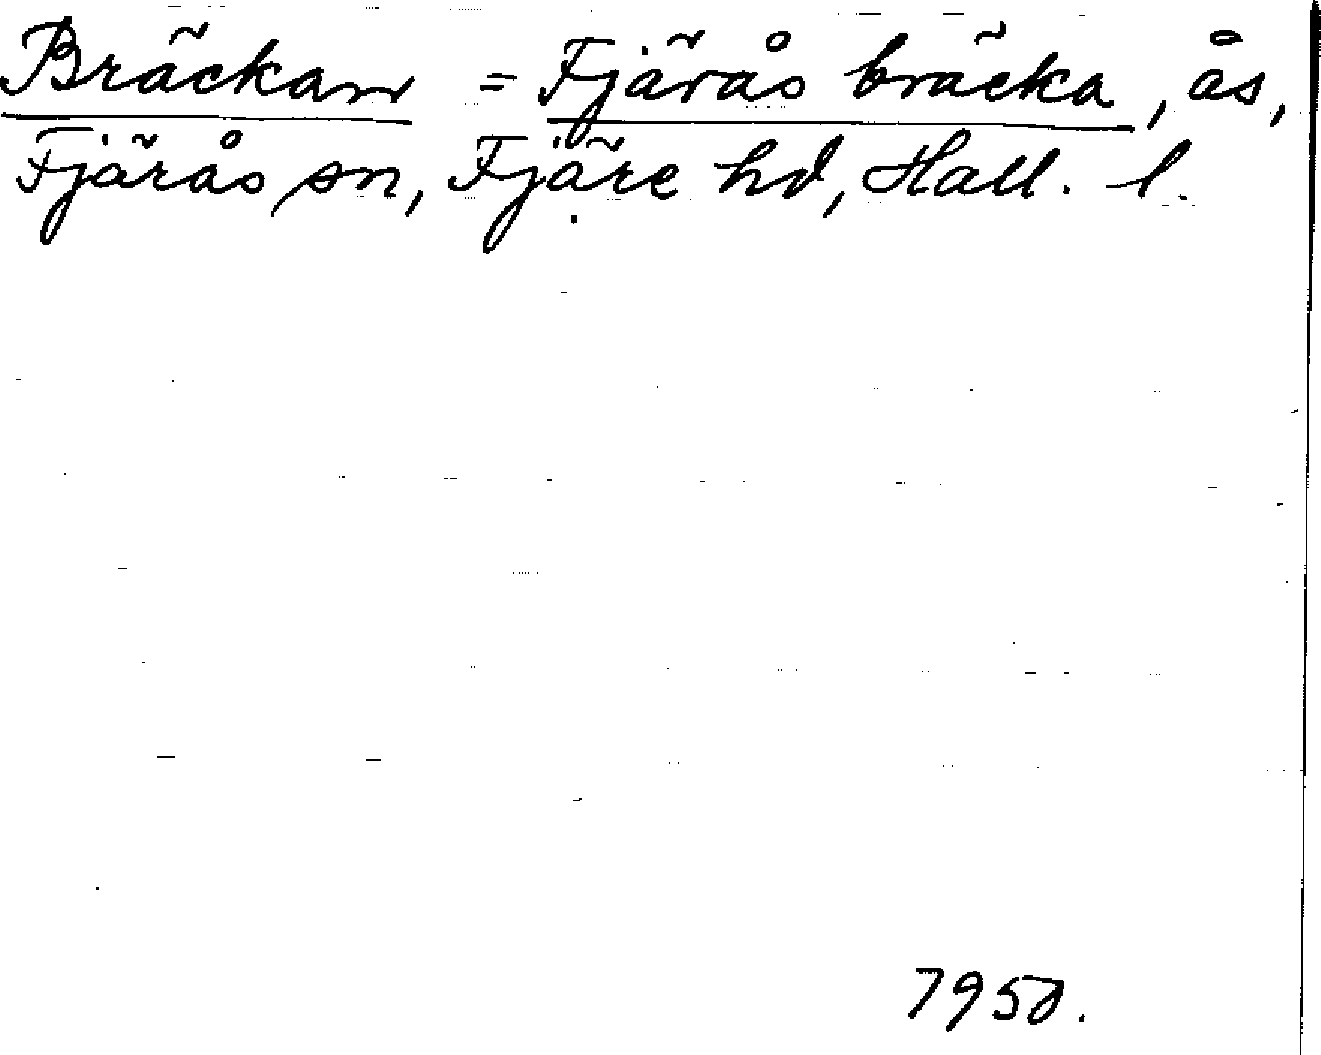 Bräckan = Fjärås bräcka, ås,
Fjärås sn, Fjäre hd, Hall. l.
7958.